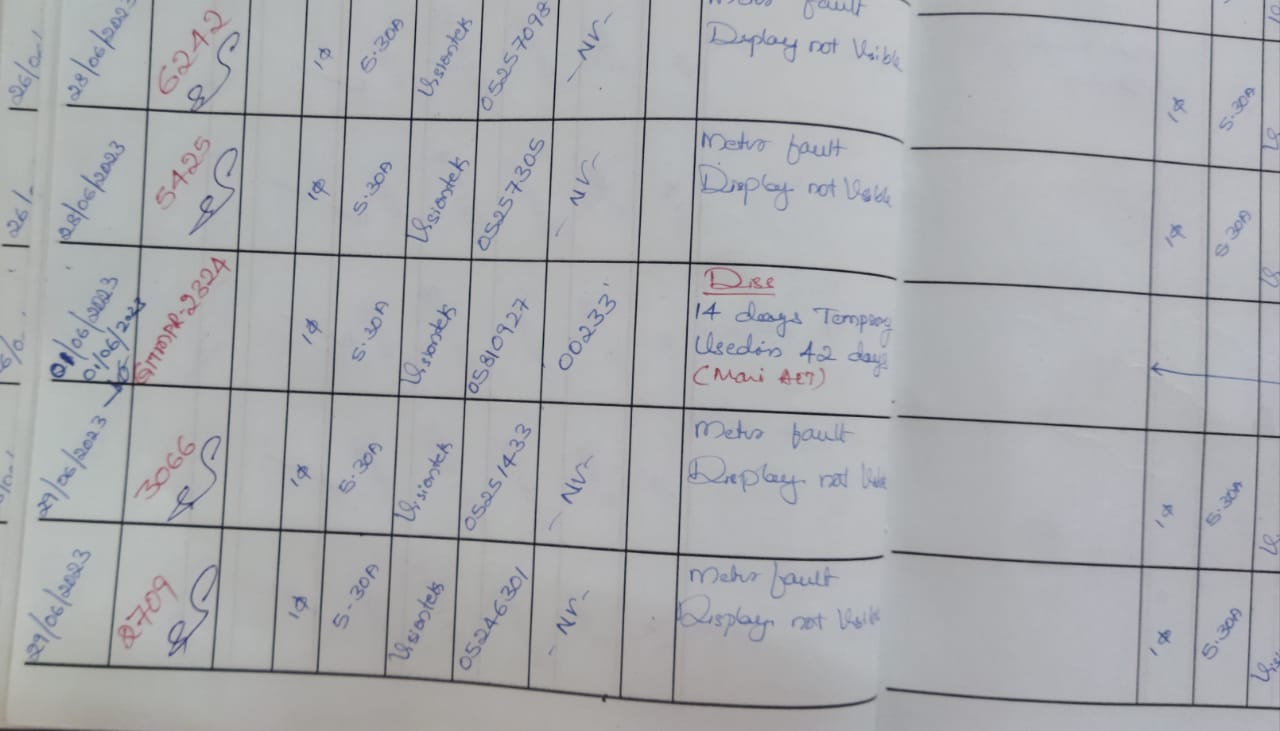 28/06/2023 6242 1φ 5.30A Visiontek 05257098 -NV-
fault
Display not Visible
1φ 5.30A
28/06/2023 5425 1φ 5.30A Visiontek 05257305 -NV-
Meter fault
Display not Visible
1φ 5.30A
01/06/2023
01/06/2023
2324 1φ 5.30A Visiontek 05810927 00233
Disc
14 days
42 days
29/06/2023 3066 1φ 5.30A Visiontek 05251433 -NV-
Meter fault
Display not Visible
1φ 5.30A
29/06/2023 2709 1φ 5.30A Visiontek 05246301 -NV-
Meter fault
Display not Visible
1φ 5.30A